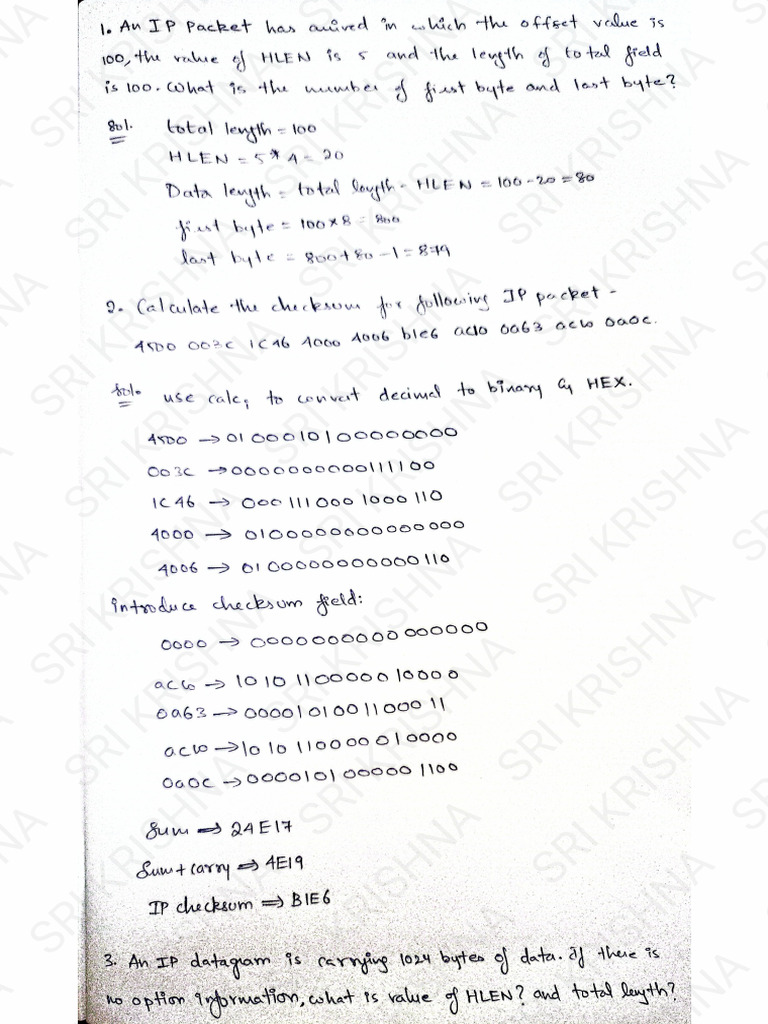 1. An IP Packet has arrived in which the offset value is
100, the value of HLEN is 5 and the length of total field
is 100. What is the number of first byte and last byte?
sol.
total length = 100
HLEN = 5 * 4 = 20
Data length = total length - HLEN = 100 - 20 = 80
first byte = 100 x 8 = 800
last byte = 800 + 80 - 1 = 879
2. Calculate the checksum for following IP packet -
4500 003C 1C46 4000 4006 b1e6 ac10 0a63 ac10 0a0c.
sol.
use calc, to convert decimal to binary by HEX.
4500 → 0100010100000000
003C → 0000000000111100
1C46 → 0001110001000110
4000 → 0100000000000000
4006 → 0100000000000110
introduce checksum field:
0000 → 0000000000000000
ac10 → 1010110000010000
0a63 → 0000101001100011
ac10 → 1010110000010000
0a0c → 0000101000001100
Sum ⇒ 24E17
Sum + carry ⇒ 4E19
IP checksum ⇒ B1E6
3. An IP datagram is carrying 1024 bytes of data. If there is
no option information, what is value of HLEN? and total length?
SRI KRISHNA